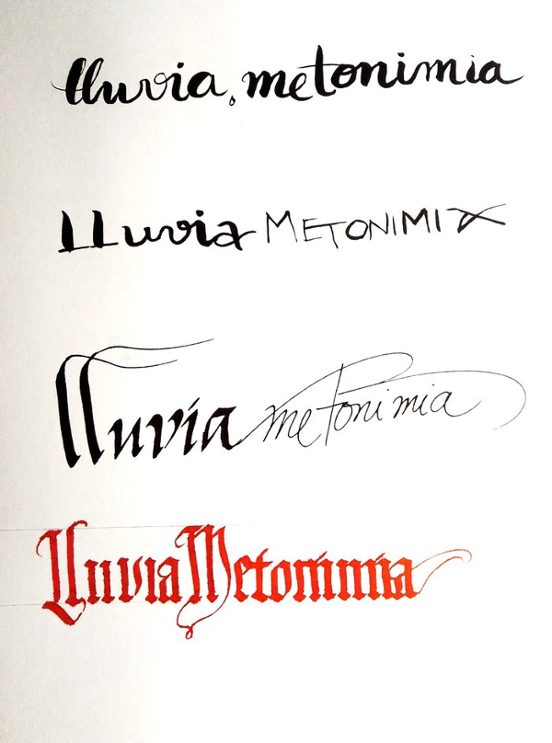 lluvia, metonimia
LLuvia METONIMIA
lluvia metonimia
Lluvia Metonimia